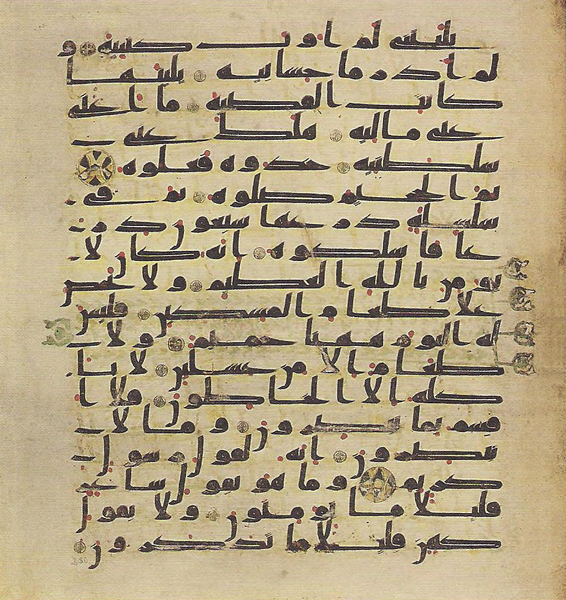 يليتني لم اوت كتبيه و
لم ادر ما حسابيه يليتها
كانت القضية ما اغنى
عني ماليه هلك عني
سلطنيه خذوه فغلوه
ثم الجحيم صلوه ثم في
سلسلة ذرعها سبعون ذر
عا فاسلكوه انه كان لا
يومن بالله العظيم ولا يحض
علا طعام المسكين فليس
له اليوم ههنا حميم ولا
طعام الا من غسلين لا يا
كله الا الخاطون فلا ا
قسم بما تبصرون وما لا
تبصرون انه لقول رسول
كريم وما هو بقول شاعر
قليلا ما تومنون ولا بقول
كهن قليلا ما تذكرون